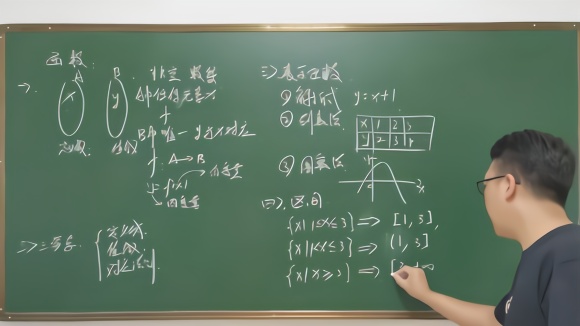 函数:
A B 非空 数集
x y A中任何元素x
f
B中唯一 y与x对应
定义域 值域
f: A→B
y=f(x) 自变量
因变量
二>三要素 { 定义域
值域
对应法则
三>表示函数
① 解析式 y=x+1
② 列表法 x 1 2 3
y 2 3 4
③ 图象法
y
x
四>, 区间
{x|1≤x≤3} ⇒ [1, 3],
{x|1<x≤3} ⇒ (1, 3]
{x|x≥3} ⇒ [3 +∞